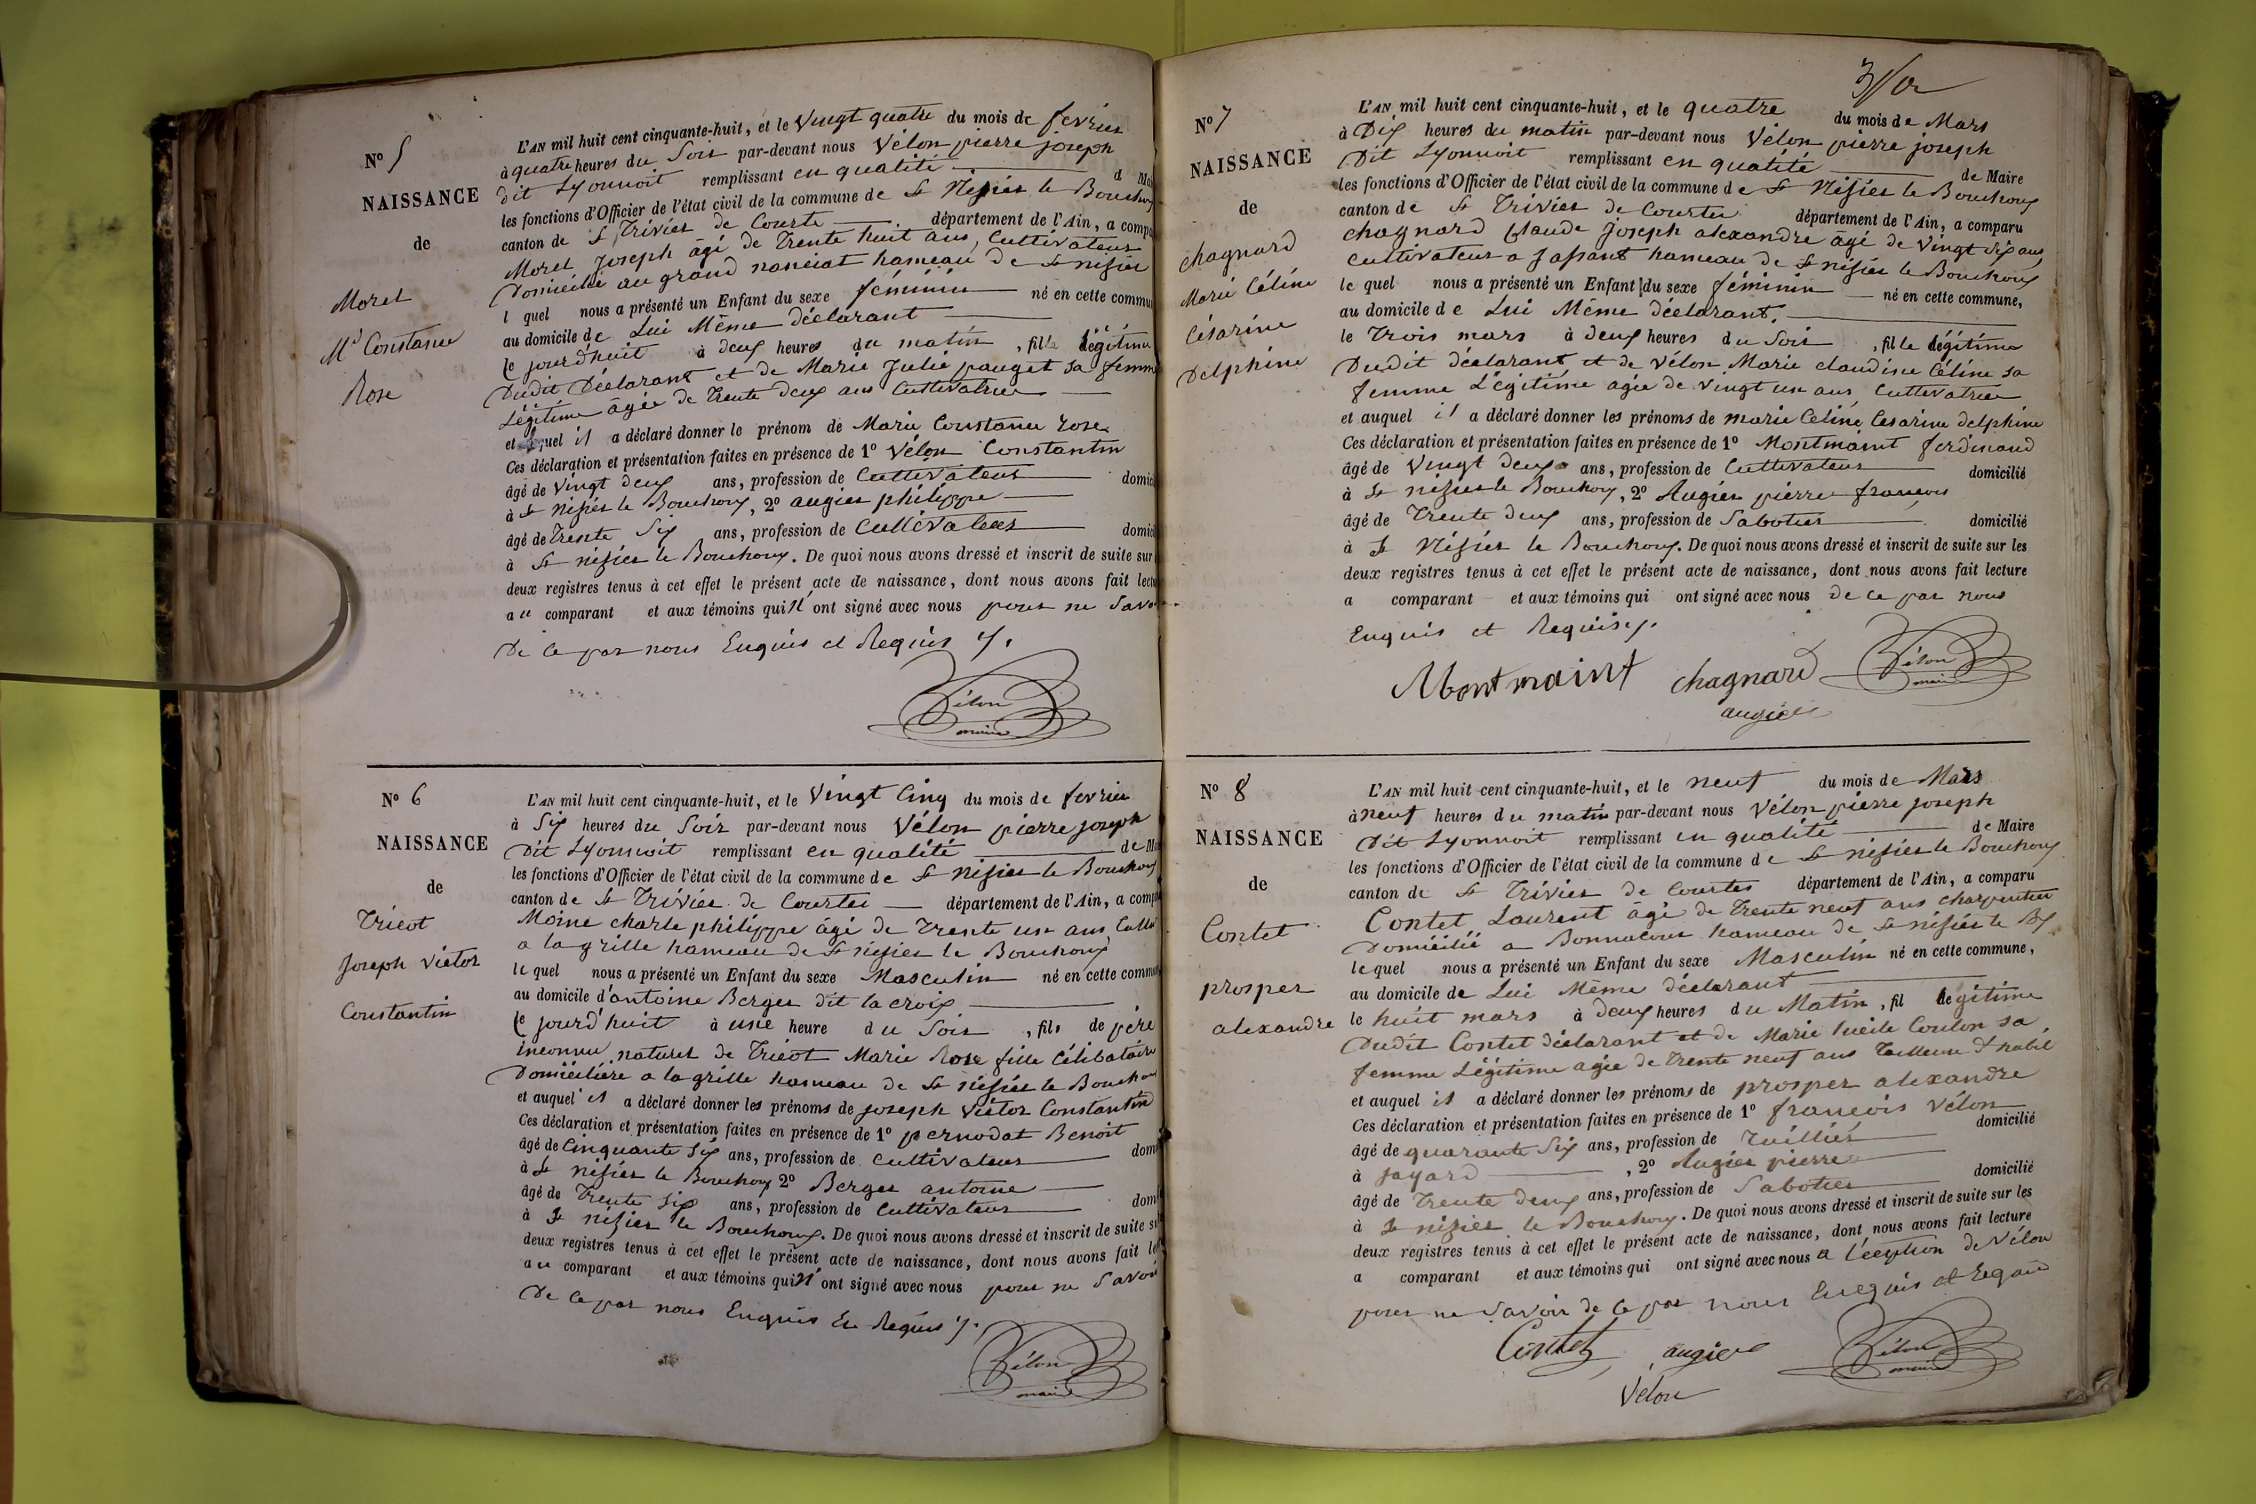 No 5
NAISSANCE
de
Morel
Mie Constance
Rose
L'AN mil huit cent cinquante-huit, et le vingt quatre du mois de fevrier
à quatre heures du Soir par-devant nous Vélon pierre joseph
dit Lyonnoit remplissant en qualité d Ma
les fonctions d'Officier de l'état civil de la commune de St Nisier le Bouchoux
canton de St Trivier de Courte département de l'Ain, a compa
Morel Joseph âgé de Trente huit ans, Cultivateur
Domicilié au grand hameau de St nisier
l quel nous a présenté un Enfant du sexe féminin né en cette commu
au domicile de Lui Même déclarant
le jourd'huit à deux heures du matin , fille légitime
Dudit Déclarant et de Marie Julie pauget sa femme
Légitime âgée de Trente deux ans Cultivatrice
et quel il a déclaré donner le prénom de Marie Constance rose
Ces déclaration et présentation faites en présence de 1o Vélon Constantin
âgé de vingt deux ans, profession de Cultivateur domici
à St Nisier le Bouchoux, 2o augier philippe
âgé de Trente Six ans, profession de Cultivateur domici
à St nisier le Bouchoux. De quoi nous avons dressé et inscrit de suite sur
deux registres tenus à cet effet le présent acte de naissance, dont nous avons fait lectu
au comparant et aux témoins qui n'ont signé avec nous pour ne Savo
De ce par nous Enquis et Requis
Vélon
maire
No 6
NAISSANCE
de
Tricot
Joseph Victor
Constantin
L'AN mil huit cent cinquante-huit, et le Vingt Cinq du mois de fevrier
à Six heures du Soir par-devant nous Vélon pierre joseph
Dit Lyonnoit remplissant en qualité de Ma
les fonctions d'Officier de l'état civil de la commune de St Nisier le Bouchoux
canton de St Trivier de Courtes département de l'Ain, a compa
Moine charle philippe âgé de Trente un ans Culti
a la grille hameau de St Nisier le Bouchoux
le quel nous a présenté un Enfant du sexe Masculin né en cette commu
au domicile d'antoine Berger dit la croix
le jourd'huit à une heure du Soir , fils de père
inconnu naturel de Tricot Marie Rose fille Célibataire
Domicilière a la grille hameau de St nisier le Boucho
et auquel il a déclaré donner les prénoms de joseph Victor Constantin
Ces déclaration et présentation faites en présence de 1o pernodat Benoit
âgé de Cinquante Six ans, profession de Cultivateur dom
à St nisier le Bouchoux 2o Berger antoine
âgé de Trente Six ans, profession de Cultivateur dom
à St nisier le Bouchoux. De quoi nous avons dressé et inscrit de suite su
deux registres tenus à cet effet le présent acte de naissance, dont nous avons fait le
au comparant et aux témoins qui n'ont signé avec nous pour ne Savoir
De ce par nous Enquis Et Requis
Vélon
maire
No 7
NAISSANCE
de
chagnard
Marie Céline
Césarine
Delphine
L'AN mil huit cent cinquante-huit, et le quatre du mois de Mars
à Dix heures du matin par-devant nous Vélon pierre joseph
Dit Lyonnoit remplissant en qualité de Maire
les fonctions d'Officier de l'état civil de la commune de St Nisier le Bouchoux
canton de St Trivier de Courtes département de l'Ain, a comparu
chagnard Claude Joseph alexandre âgé de Vingt Six ans
cultivateur a hameau de St nisier le Bouchoux
le quel nous a présenté un Enfant du sexe féminin né en cette commune,
au domicile de Lui Même déclarant.
le Trois mars à deux heures du Soir , fille légitime
Dudit déclarant et de Vélon Marie claudine Céline sa
femme Légitime agée de vingt un ans Cultivatrice
et auquel il a déclaré donner les prénoms de marie Céline Cesarine delphine
Ces déclaration et présentation faites en présence de 1o Montmaint ferdinand
âgé de Vingt deux ans, profession de Cultivateur domicilié
à St nizier le Bouchoux, 2o Augier pierre francois
âgé de Trente deux ans, profession de Sabotier domicilié
à St Nisier le Bouchoux. De quoi nous avons dressé et inscrit de suite sur les
deux registres tenus à cet effet le présent acte de naissance, dont nous avons fait lecture
a comparant et aux témoins qui ont signé avec nous de ce par nous
Enquis et Requis
Montmaint chagnard Vélon
maire
augier
No 8
NAISSANCE
de
Contet
prosper
alexandre
L'AN mil huit cent cinquante-huit, et le neuf du mois de Mars
à neuf heures du matin par-devant nous Vélon pierre joseph
Dit Lyonnoit remplissant en qualité de Maire
les fonctions d'Officier de l'état civil de la commune de St nisier le Bouchoux
canton de St Trivier de Courtes département de l'Ain, a comparu
Contet Laurent âgé de Trente neuf ans charpentier
Domicilié a Bonnacour hameau de St nisier le Bx
le quel nous a présenté un Enfant du sexe Masculin né en cette commune,
au domicile de Lui Même déclarant
le huit mars à deux heures du Matin , fil légitime
Dudit Contet déclarant et de Marie lucile Coulon sa
femme Légitime agée de Trente neuf ans Tailleuse d'habit
et auquel il a déclaré donner les prénoms de prosper alexandre
Ces déclaration et présentation faites en présence de 1o francois Vélon
âgé de quarante Six ans, profession de Tuillier domicilié
à Jayard , 2o Augier pierre
âgé de Trente deux ans, profession de Sabotier domicilié
à St nisier le Bouchoux. De quoi nous avons dressé et inscrit de suite sur les
deux registres tenus à cet effet le présent acte de naissance, dont nous avons fait lecture
a comparant et aux témoins qui ont signé avec nous a l'éception de Vélon
pour ne Savoir de ce par nous Enquis et
Contet augier Vélon
maire
Velon